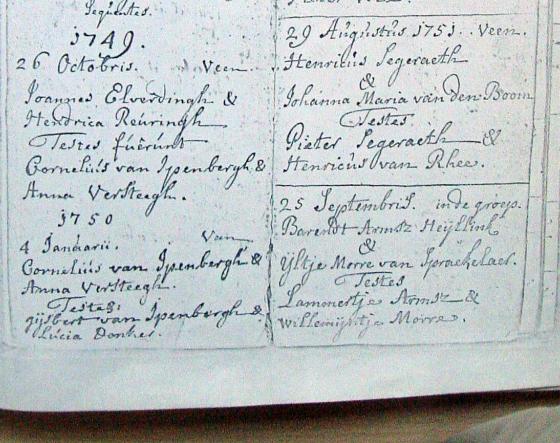 Sequentes.
1749.
26 Octobris. Veen.
Joannes Elverdingh &
Hendrica Reuringh
Testes fuêrunt
Cornelius van Ipenbergh &
Anna Versteegh.
1750
4 Januarii. Van
Cornelius van Ipenbergh &
Anna Versteegh.
Testes:
gijsbert van Ipenbergh &
Lucia Donker.
29 Augustus 1751. Veen.
Henricus Segeraeth
&
Johanna Maria van Den Boom
Testes
Pieter Segeraeth &
Henricus van Rhee.
25 Septembris. inde groep.
Barendt Armsz Heijllink
&
Yltje Morre van Spraekelaer.
Testes
Lammertje Armsz &
Willemijntje Morre.